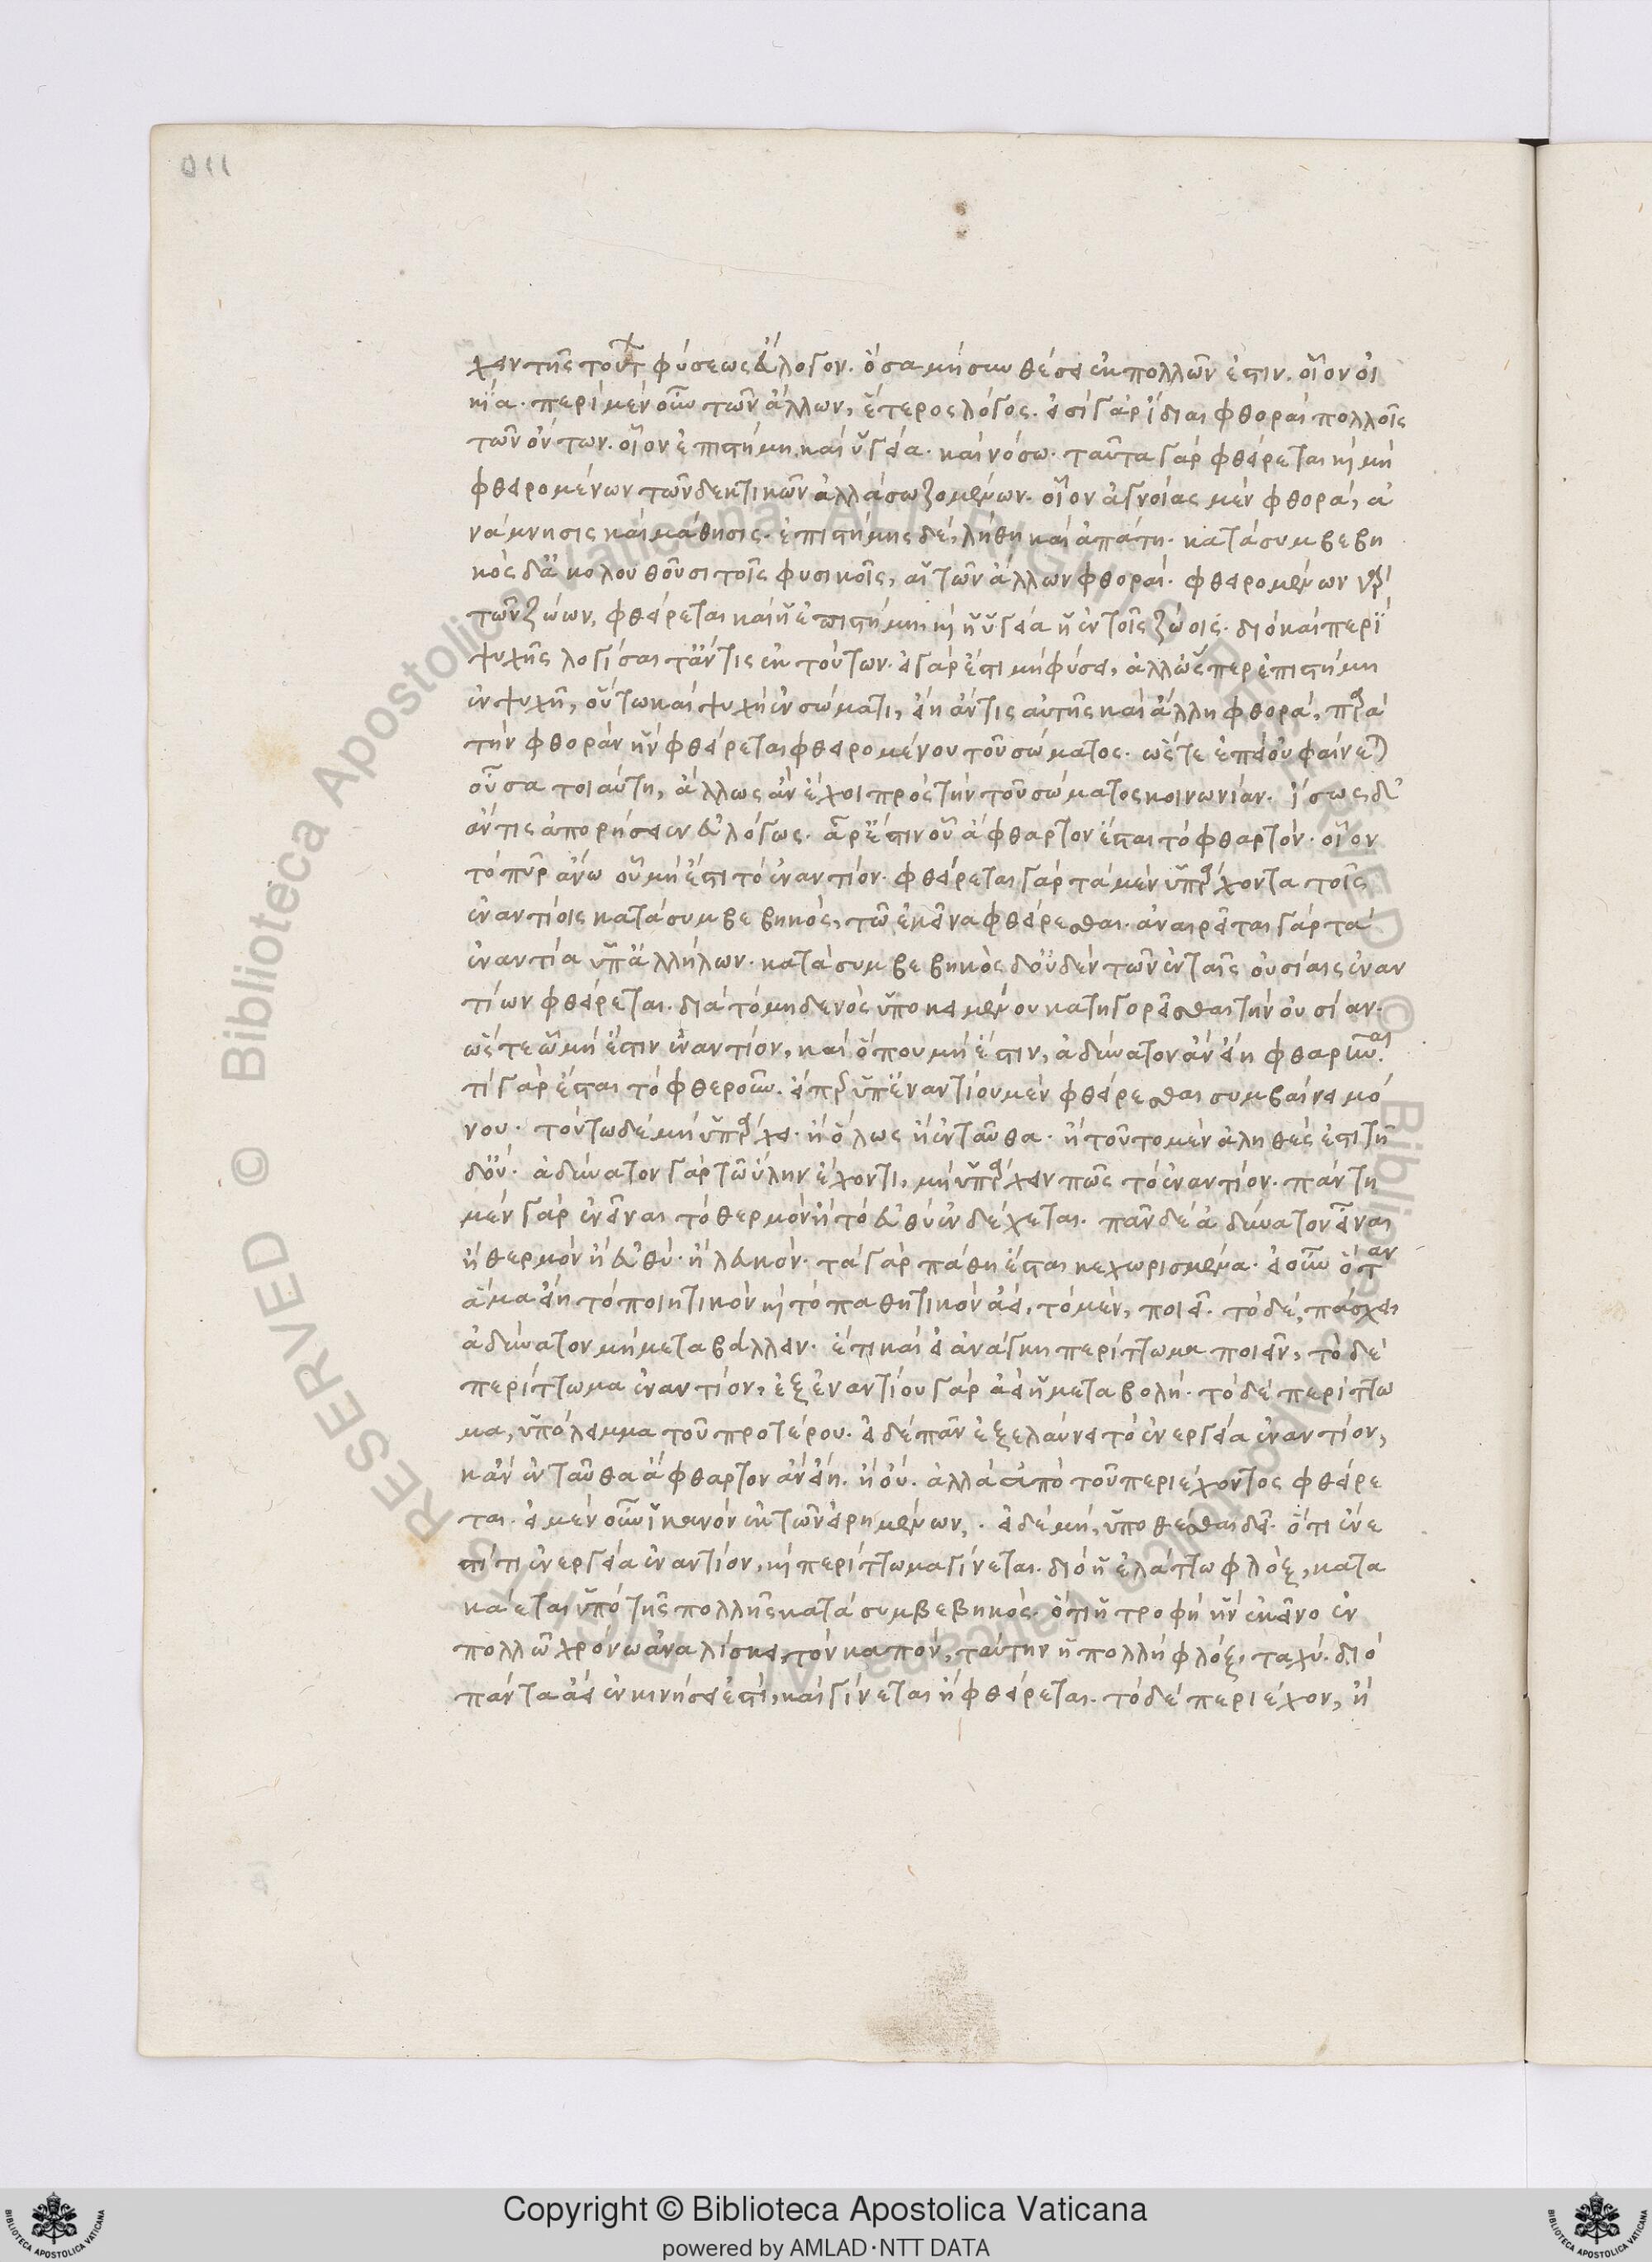 χειν τῆς τούτ(ων) φύσεως εὔλογον. ὅσα μὴ συνθέσει ἐκ πολλῶν ἐστιν. οἷον οἰ
κία. περὶ μὲν οὖν τῶν ἄλλων, ἕτερος λόγος. εἰσὶ γὰρ ἴδιαι φθοραὶ πολλοῖς
τῶν ὄντων. οἷον ἐπιστήμη καὶ ὑγεία. καὶ νόσω. ταῦτα γὰρ φθείρεται κ(αὶ) μὴ
φθειρομένων τῶν δεκτικῶν ἀλλὰ σωζομένων. οἷον ἀγνοίας μὲν φθορὰ, ἀ
νάμνησις καὶ μάθησις. ἐπιστήμης δὲ, λήθη καὶ ἀπάτη. κατὰ συμβεβη
κὸς δ' ἀκολουθοῦσι τοῖς φυσικοῖς, αἱ τῶν ἄλλων φθοραί. φθειρομένων γὰρ
τῶν ζώων, φθείρεται καὶ ἡ ἐπιστήμη κ(αὶ) ἡ ὑγεία ἡ ἐν τοῖς ζώοις. διὸ καὶ περὶ
ψυχῆς λογίσαιτ' ἄν τις ἐκ τούτων. εἰ γάρ ἐστι μὴ φύσει, ἀλλ' ὥσπερ ἐπιστήμη
ἐν ψυχῇ, οὕτω καὶ ψυχὴ ἐν σώματι, εἴη ἄν τις αὐτῆς καὶ ἄλλη φθορὰ, παρὰ
τὴν φθορὰν ἣν φθείρεται φθειρομένου τοῦ σώματος. ὥστε ἐπεὶ οὐ φαίνετ(αι)
οὖσα τοιαύτη, ἄλλως ἂν ἔχοι πρὸς τὴν τοῦ σώματος κοινωνίαν. ἴσως δ'
ἄν τις ἀπορήσειεν εὐλόγως. ἆρ' ἔστιν οὗ ἄφθαρτον ἔσται τὸ φθαρτόν. οἷον
τὸ πῦρ ἄνω οὗ μή ἐστι τὸ ἐναντίον. φθείρεται γὰρ τὰ μὲν ὑπάρχοντα τοῖς
ἐναντίοις κατὰ συμβεβηκὸς, τῶ ἐκεῖνα φθείρεσθαι. ἀναιρεῖται γὰρ τὰ
ἐναντία ὑπ' ἀλλήλων. κατὰ συμβεβηκὸς δ' οὐδὲν τῶν ἐν ταῖς οὐσίαις ἐναν
τίων φθείρεται. διὰ τὸ μηδενὸς ὑποκειμένου κατηγορεῖσθαι τὴν οὐσίαν.
ὥστε ὧ μὴ ἔστιν ἐναντίον, καὶ ὅπου μὴ ἔστιν, ἀδύνατον ἂν εἴη φθαρῆναι.
τί γὰρ ἔσται τὸ φθεροῦν. εἴπερ ὑπ' ἐναντίου μὲν φθείρεσθαι συμβαίνει μό
νου. τούτω δὲ μὴ ὑπάρχει. ἢ ὅλως ἢ ἐνταῦθα. ἢ τοῦτο μὲν ἀληθές ἐστι τῇ
δ' οὔ. ἀδύνατον γὰρ τῶ ὕλην ἔχοντι, μὴ ὑπάρχειν πῶς τὸ ἐναντίον. πάντη
μὲν γὰρ ἐνεῖναι τὸ θερμὸν ἢ τὸ εὐθὺ ἐνδέχεται. πᾶν δὲ ἀδύνατον εἶναι
ἢ θερμὸν ἢ εὐθὺ. ἢ λευκόν. τὰ γὰρ πάθη ἔσται κεχωρισμένα. εἰ οὖν ὅταν
ἅμα εἴη τὸ ποιητικὸν κ(αὶ) τὸ παθητικὸν ἀεὶ, τὸ μὲν, ποιεῖ. τὸ δὲ, πάσχει
ἀδύνατον μὴ μεταβάλλειν. ἔτι καὶ εἰ ἀνάγκη περίττωμα ποιεῖν, τὸ δὲ
περίττωμα ἐναντίον, ἐξ ἐναντίου γὰρ ἀεὶ ἡ μεταβολή. τὸ δὲ περίττω
μα, ὑπόλειμμα τοῦ προτέρου. εἰ δὲ πᾶν ἐξελαύνει τὸ ἐνεργεία ἐναντίον,
κἂν ἐνταῦθα ἄφθαρτον ἂν εἴη. ἢ οὔ. ἀλλὰ ἀπὸ τοῦ περιέχοντος φθείρε
ται. εἰ μὲν οὖν ἱκανὸν ἐκ τῶν εἰρημένων,. εἰ δὲ μὴ, ὑποθέσθαι δεῖ. ὅτι ἔνε
στί τι ἐνεργεία ἐναντίον, κ(αὶ) περίττωμα γίνεται. διὸ ἡ ἐλάττω φλὸξ, κατα
καίεται ὑπὸ τῆς πολλῆς κατὰ συμβεβηκὸς. ὅτι ἡ τροφὴ ἣν ἐκεῖνο ἐν
πολλῶ χρόνω ἀναλίσκει, τὸν καπνὸν, ταύτην ἡ πολλὴ φλὸξ, ταχύ. διὸ
πάντα ἀεὶ ἐν κινήσει ἐστὶ, καὶ γίνεται ἢ φθείρεται. τὸ δὲ περιέχον, ἢ
Copyright © Biblioteca Apostolica Vaticana
powered by AMLAD·NTT DATA